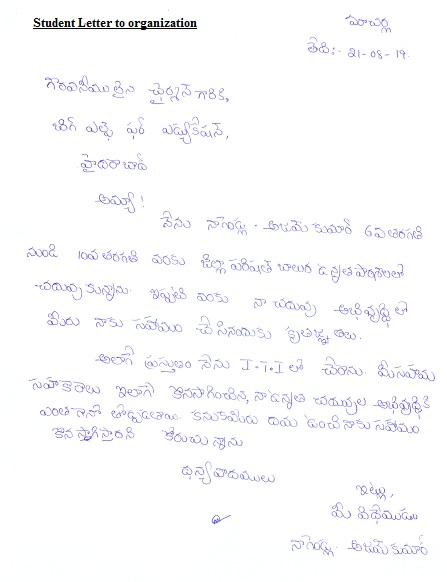 Student Letter to organization
మాచర్ల
తేది:- 21-08-19.
గౌరవనీయులైన ఛైర్మన్ గారికి,
బిగ్ హెల్ప్ ఫర్ ఎడ్యుకేషన్,
హైదరాబాద్
అమ్మా!
నేను నాగెండ్ల . అజయ్ కుమార్ 6వ తరగతి
నుండి 10వ తరగతి వరకు జిల్లా పరిషత్ బాలుర ఉన్నత పాఠశాలలో
చదువుకున్నాను. ఇప్పటి వరకు నా చదువు అభివృద్ధిలో
మీరు నాకు సహాయం చేసినందుకు కృతజ్ఞతలు.
అలాగే ప్రస్తుతం నేను I.T.I లో చేరాను. మీ సహాయ
సహకారాలు ఇలాగే కొనసాగించిన, నా ఉన్నత చదువుల అభివృద్ధికి
ఎంతగానో తోడ్పడతాయి. కనుక మీరు దయ ఉంచి నాకు సహాయం
కొనసాగిస్తారని కోరుచున్నాను
ధన్యవాదములు
ఇట్లు,
మీ విధేయుడు
నాగెండ్ల. అజయ్ కుమార్